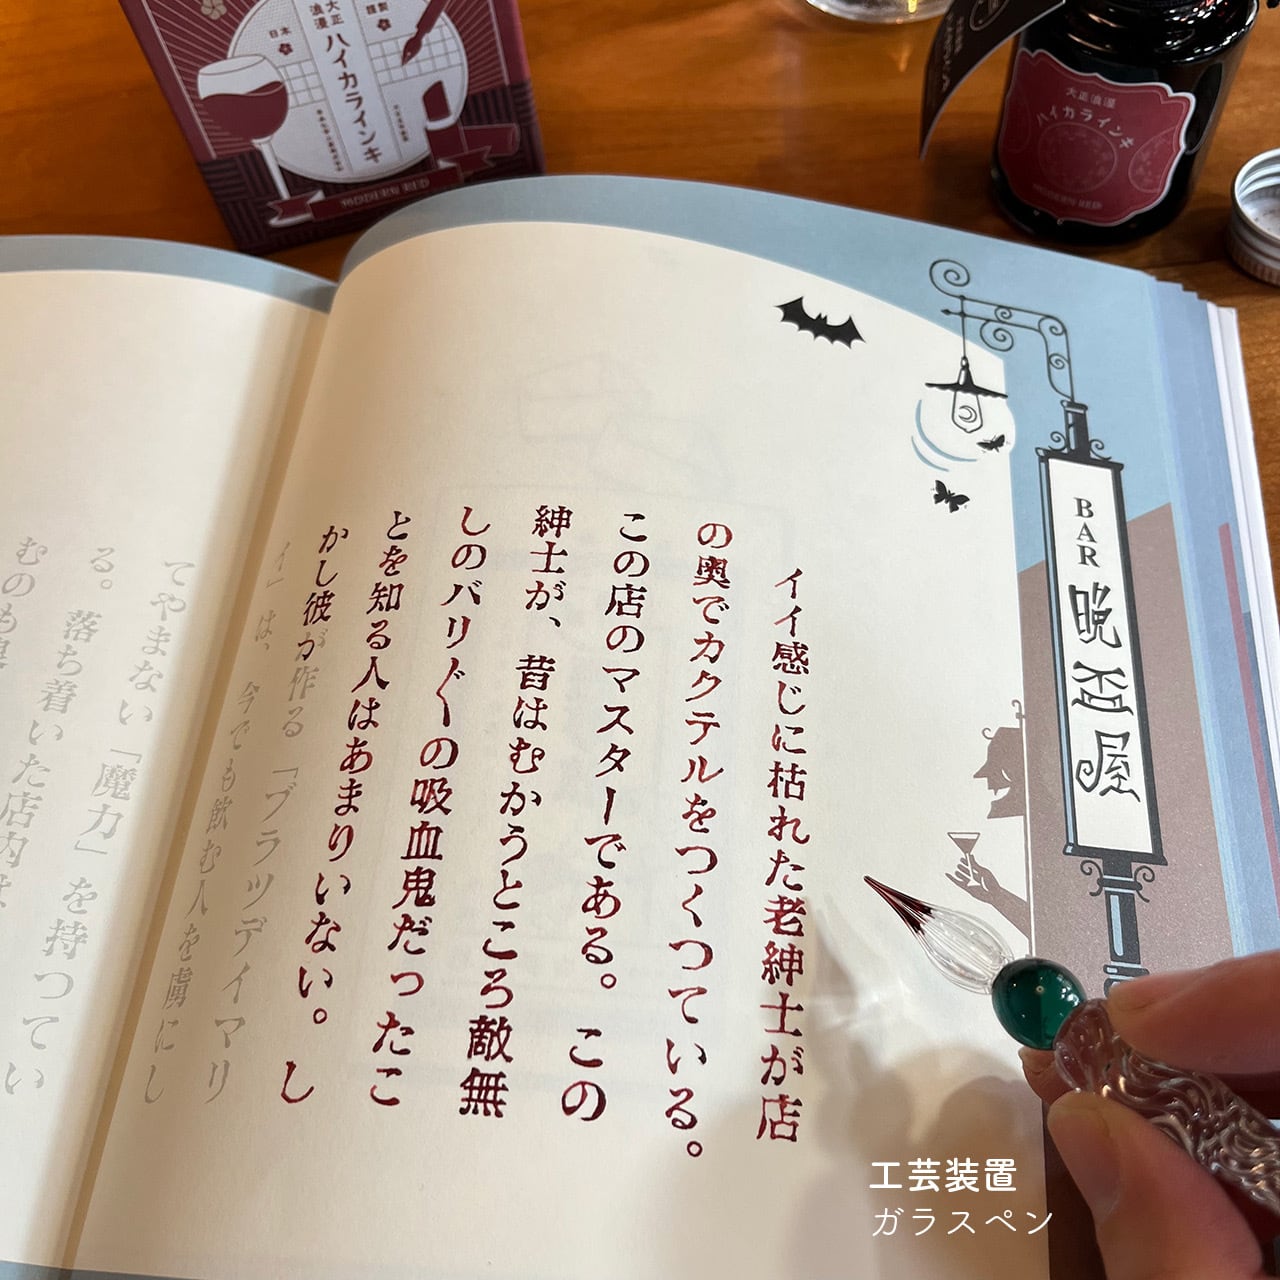 大正浪漫
ハイカラインキ
日本
謹製
MODERN RED
大正浪漫
ハイカラインキ
MODERN RED
BAR 晩盃屋
イイ感じに枯れた老紳士が店
の奥でカクテルをつくっている。
この店のマスターである。この
紳士が、昔はむかうところ敵無
しのバリ〴〵の吸血鬼だったこ
とを知る人はあまりいない。し
かし彼が作る「ブラッディマリ
イ」は、今でも飲む人を虜にし
てやまない「魔力」を持つてい
る。落ち着いた店内は
工芸装置
ガラスペン